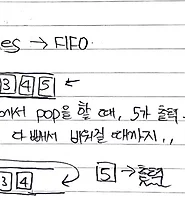 es → FIFO
3 4 5 ←
에서 pop을 할 때, 5가 출력
다 빼서 바뀌길 때까지,,
3 4 5 → 출력